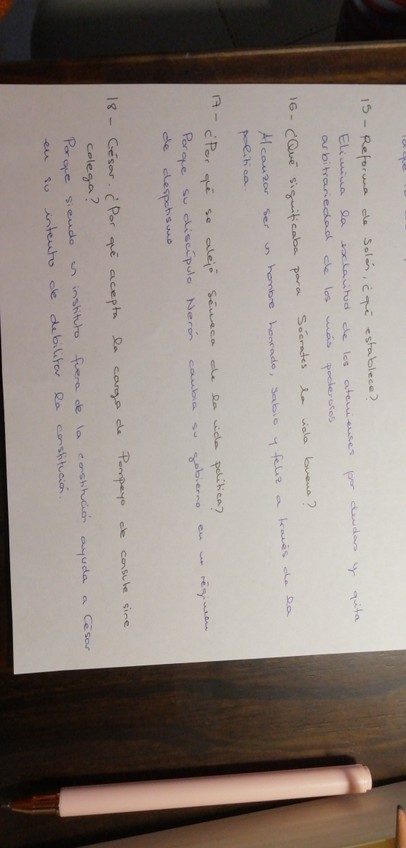 15 - Reforma de Solón, ¿qué establece?
Elimina la esclavitud de los atenienses por deudas y quita
arbitrariedad de los más poderosos
16 - ¿Qué significaba para Sócrates la vida buena?
Alcanzar ser un hombre honrado, sabio y feliz a través de la
política.
17 - ¿Por qué se alejó Séneca de la vida política?
Porque su discípulo Nerón cambia su gobierno en un régimen
de despotismo
18 - César. ¿Por qué acepta la carga de Pompeyo de consule sine
colega?
Porque siendo un instituto fuera de la constitución ayuda a César
en su intento de debilitar la constitución.